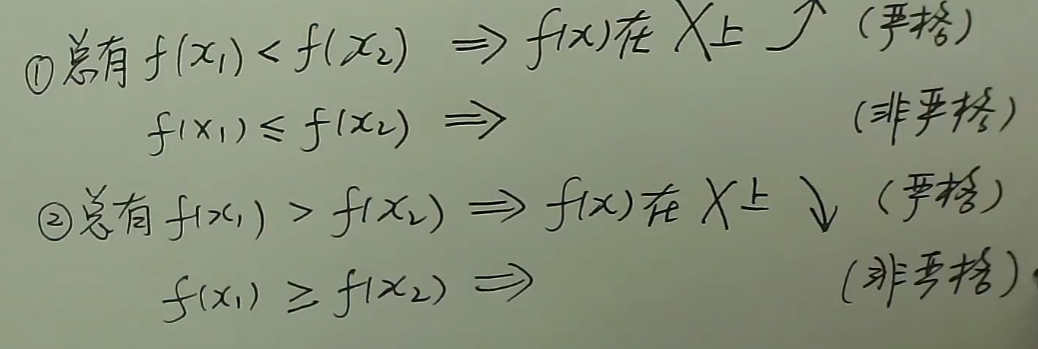 ①总有 f(x₁) < f(x₂) ⇒ f(x)在 X上 ↗ (严格)
f(x₁) ≤ f(x₂) ⇒ (非严格)
②总有 f(x₁) > f(x₂) ⇒ f(x)在 X上 ↘ (严格)
f(x₁) ≥ f(x₂) ⇒ (非严格)